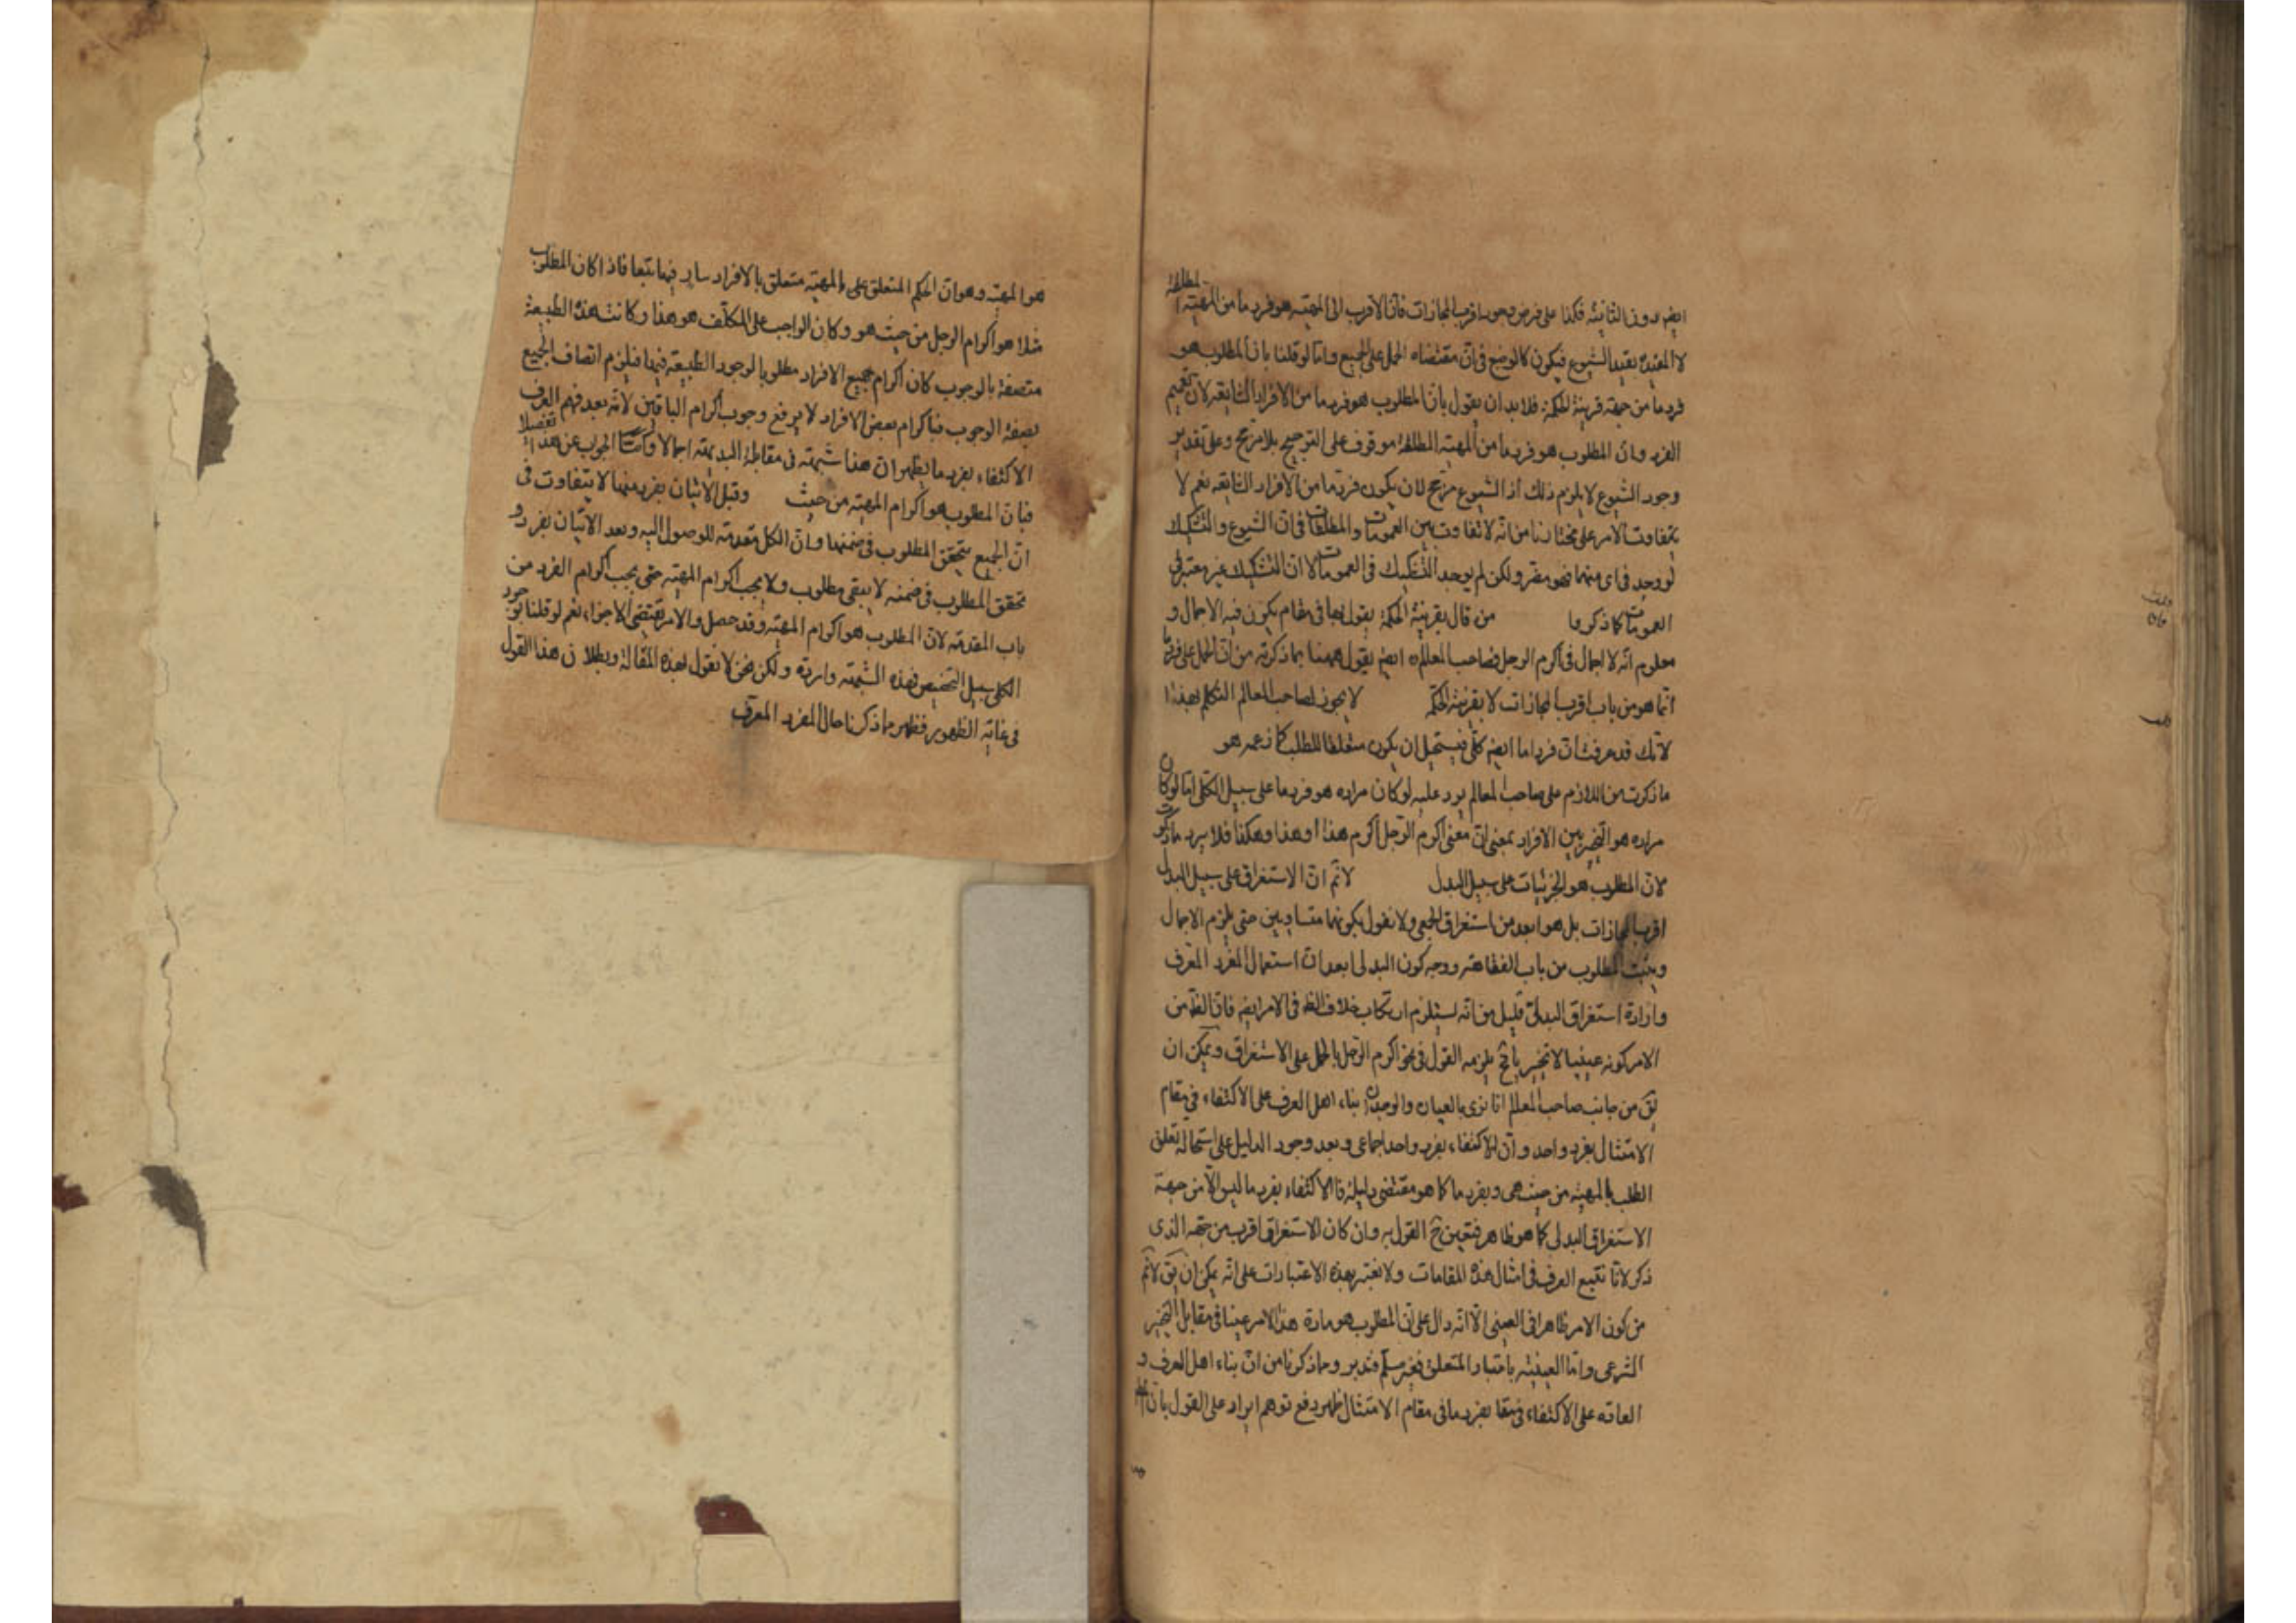 ايضه دون الثانية فكذا على فرض وجود اقرب المجازات فان الاقرب الى المهية هو فرد ما من المهية المطلقة
لا المقيدة بقيد الشيوع فيكون كالوضع فى ان مقتضاه الحمل على الجميع وامّا لو قلنا بان المطلوب هو
فرد ما من جهة قرينة الحكمة فلابد ان يقول بان المطلوب هو فرد ما من الافراد الشايعة لان تعميم
الفرد وان المطلوب هو فرد ما من المهية المطلقة موقوف على الترجيح بلا مرجح وعلى تقدير
وجود الشيوع لا يلزم ذلك اذ الشيوع مرجح لان يكون فرد ما من الافراد الشايعة نعم لا
يتفاوت الامر على مختارنا من انه لا تفاوت بين العمومات والمطلقات فى ان الشيوع والتشكيك
لو وجد فى اى منهما فهو مضر ولكن لم يوجد التشكيك فى العمومات الا ان التشكيك غير معتبر فى
العمومات كما ذكروا من قال بقرينة الحكمة يقول بها فى مقام يكون فيه الاجمال و
معلوم انه لا اجمال فى اكرم الرجل فصاحب المعالم ره ايضه يقول ههنا بما ذكرته من ان الحمل على فرد ما
انما هو من باب اقرب المجازات لا بقرينة الحكمة لا يجوز لصاحب المعالم التكلم بهذا
لانك قد عرفت ان فردا ما ايضه كلى فيستحيل ان يكون متعلقا للطلب كما زعمه هو
ما ذكرت من اللازم على صاحب المعالم يرد عليه لو كان مراده هو فرد ما على سبيل الكلى امّا لو كان
مراده هو التخيير بين الافراد بمعنى ان معنى اكرم الرجل اكرم هذا او هذا وهكذا فلا يرد ما ذكرت
لان المطلوب هو الجزئيات على سبيل البدل لا نم ان الاستغراق على سبيل البدل
اقرب المجازات بل هو ابعد من استغراق الجمعى ولا نقول بكونهما متساويين حتى يلزم الاجمال
ويثبت المطلوب من باب الفقاهة ووجه كون البدلى ابعد ان استعمال المفرد المعرف
وارادة استغراق البدلى قليل من انه يستلزم ارتكاب خلاف الظ فى الامر ايضه فان الظ من
الامر كونه عينيا لا تخييريا فح يلزمه القول فى نحو اكرم الرجل بالحمل على الاستغراق ويمكن ان
يق من جانب صاحب المعالم انا نرى بالعيان والوجدان بناء اهل العرف على الاكتفاء فى مقام
الامتثال بفرد واحد وان الاكتفاء بفرد واحد اجماعى وبعد وجود الدليل على استحالة تعلق
الطلب بالمهية من حيث هى وبفرد ما كما هو مقتضى دليله فالاكتفاء بفرد ما ليس الا من جهة
الاستغراق البدلى كما هو ظاهر فتعين ح القول به وان كان الاستغراق اقرب من جهة الذى
ذكر لانا نتبع العرف فى امثال هذه المقامات ولا نعتبر بهذه الاعتبارات على انه يمكن ان يق لا نم
من كون الامر ظاهرا فى العينى الا انه دال على ان المطلوب هو مادة هذا الامر عينا فى مقابل التخيير
الشرعى وامّا العينية باعتبار المتعلق فغير مسلم فتدبر ومما ذكرنا من ان بناء اهل العرف و
العادة على الاكتفاء فى مقام بفرد ما فى مقام الامتثال ظهر دفع توهم ايراد على القول بان
هو المهية وهو ان الحكم المتعلق على المهية متعلق بالافراد سار فيها تبعا فاذا كان المطلوب
مثلا هو اكرام الرجل من حيث هو وكان الواجب على المكلف هو هذا وكانت هذه الطبيعة
متصفة بالوجوب كان اكرام جميع الافراد مطلوبا لوجود الطبيعة فيها فيلزم اتصاف الجميع
بصفة الوجوب فباكرام بعض الافراد لا يرفع وجوب اكرام الباقين لانه بعد فهم العرف
الاكتفاء بفرد ما يظهر ان هذا شبهة فى مقابلة البديهة اجمالا وامّا الجواب عن هذا تفصيلا
فبان المطلوب هو اكرام المهية من حيث وقبل الاتيان بفرد منها لا يتفاوت فى
ان الجميع يتحقق المطلوب فى ضمنها وان الكل مقدمة للوصول اليه وبعد الاتيان بفرد و
تحقق المطلوب فى ضمنه لا يبقى مطلوب ولا يجب اكرام المهية حتى يجب اكرام الفرد من
باب المقدمة لان المطلوب هو اكرام المهية وقد حصل والامر يقتضى الاجزاء نعم لو قلنا بوجود
الكلى سبيل التخيير فهذه الشبهة واردة ولكن نحن لا نقول بهذه المقالة وبطلان هذا القول
فى غاية الظهور فظهر مما ذكرنا حال المفرد المعرف